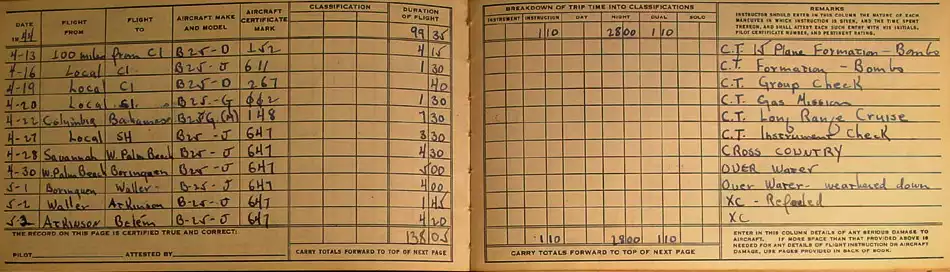 DATE 19 44 FLIGHT FROM FLIGHT TO AIRCRAFT MAKE AND MODEL AIRCRAFT CERTIFICATE MARK CLASSIFICATION DURATION OF FLIGHT
99 35
4-13 100 miles from CI B25-D 152 4 15
4-16 Local CI B25-J 611 1 30
4-19 Local CI B25-D 267 40
4-20 Local B25-G 1 30
4-22 Columbia Bahamas 148 7 30
4-27 Local SH B25-J 647 3 30
4-28 Savannah W. Palm Beach B25-J 647 4 30
4-30 W. Palm Beach Borinquen B25-J 647 5 00
5-1 Borinquen Waller B-25-J 647 4 00
5-2 Waller Atkinson B-25-J 647 1 45
Atkinson Belem B-25-J 647 4 20
THE RECORD ON THIS PAGE IS CERTIFIED TRUE AND CORRECT: 138 05
PILOT ATTESTED BY CARRY TOTALS FORWARD TO TOP OF NEXT PAGE
BREAKDOWN OF TRIP TIME INTO CLASSIFICATIONS REMARKS
INSTRUMENT INSTRUCTION DAY NIGHT DUAL SOLO
INSTRUCTOR SHOULD ENTER IN THIS COLUMN THE NATURE OF EACH
MANEUVER IN WHICH INSTRUCTION IS GIVEN, AND THE TIME SPENT
THEREON, AND SHALL ATTEST EACH SUCH ENTRY WITH HIS INITIALS,
PILOT CERTIFICATE NUMBER, AND PERTINENT RATING.
1 10 28 00 1 10
C.T. 15 Plane Formation - Bombs
C.T. Formation - Bombs
C.T. Group Check
C.T. Gas Mission
C.T. Long Range Cruise
C.T. Instrument Check
CROSS COUNTRY
OVER Water
Over Water - weathered down
XC - Refueled
XC
1 10 28 00 1 10
CARRY TOTALS FORWARD TO TOP OF NEXT PAGE
ENTER IN THIS COLUMN DETAILS OF ANY SERIOUS DAMAGE TO
AIRCRAFT. IF MORE SPACE THAN THAT PROVIDED ABOVE IS
NEEDED FOR ANY DETAILS OF FLIGHT INSTRUCTION OR AIRCRAFT
DAMAGE, USE PAGES PROVIDED IN BACK OF BOOK.